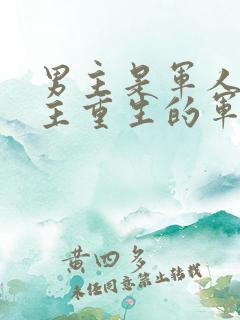 男主是军人
主重生的军
黄四多
未经同意禁止转载